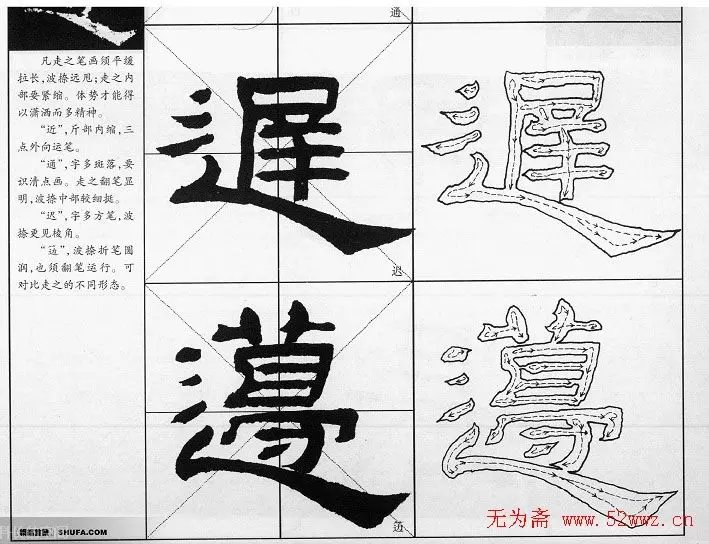 通
凡走之笔画须平缓
拉长，波捺远甩；走之内
部要紧缩。体势才能得
以潇洒而多精神。
“近”，斤部内缩，三
点外向运笔。
“通”，字多斑落，要
识清点画。走之翻笔显
明，波捺中部较细挺。
“迟”，字多方笔，波
捺更见棱角。
润，也须翻笔运行。可
对比走之的不同形态。
遲
迟
SHUFA.COM
无为斋 www.52wwz.cn